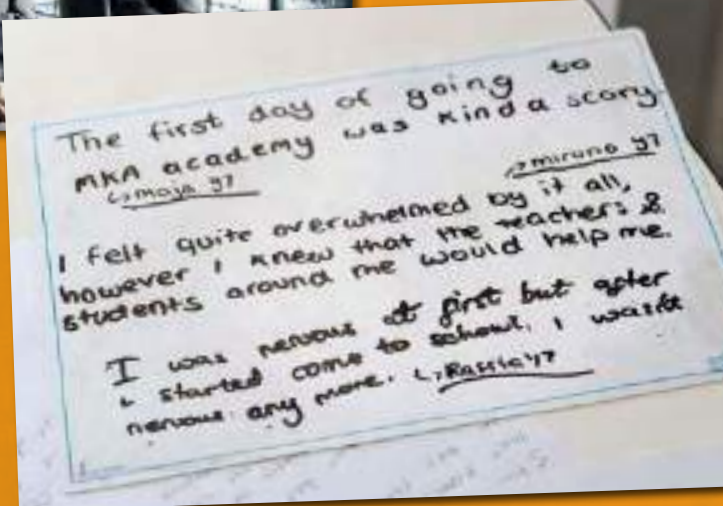 The first day of going to
MKA academy was kinda scary
↳ maja y7
↗ miruna y7
I felt quite overwhelmed by it all,
however I knew that the teachers &
students around me would help me.
I was nervous at first but after
I started come to school. I wasn't
nervous any more. ↳ Rassia y7